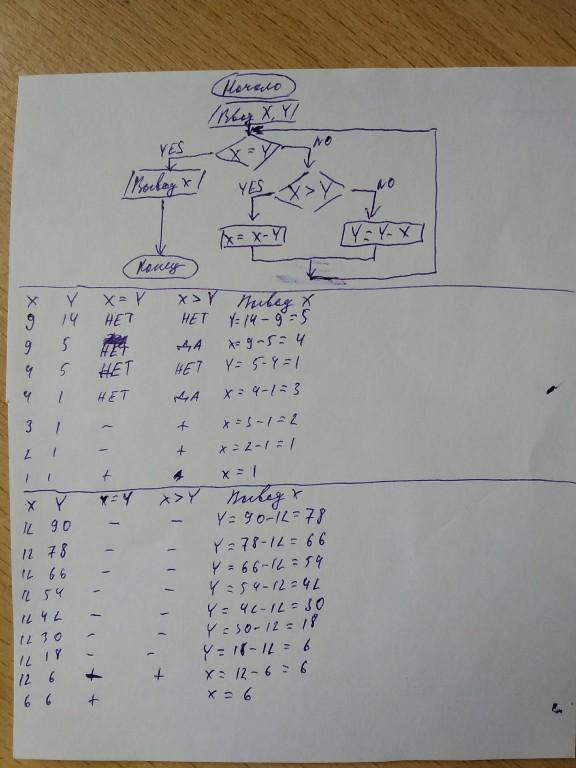 Начало
Ввод X, Y
X = Y
YES
NO
Вывод X
X > Y
YES
NO
X = X-Y
Y = Y-X
Конец
X Y X = Y X > Y Вывод X
9 14 НЕТ НЕТ Y=14-9=5
9 5 НЕТ ДА X=9-5=4
4 5 НЕТ НЕТ Y=5-4=1
4 1 НЕТ ДА X=4-1=3
3 1 - + X=3-1=2
2 1 - + X=2-1=1
1 1 + X=1
X Y X=Y X>Y Вывод X
12 90 - - Y=90-12=78
12 78 - - Y=78-12=66
12 66 - - Y=66-12=54
12 54 - - Y=54-12=42
12 42 - - Y=42-12=30
12 30 - - Y=30-12=18
12 18 - - Y=18-12=6
12 6 + X=12-6=6
6 6 + X=6